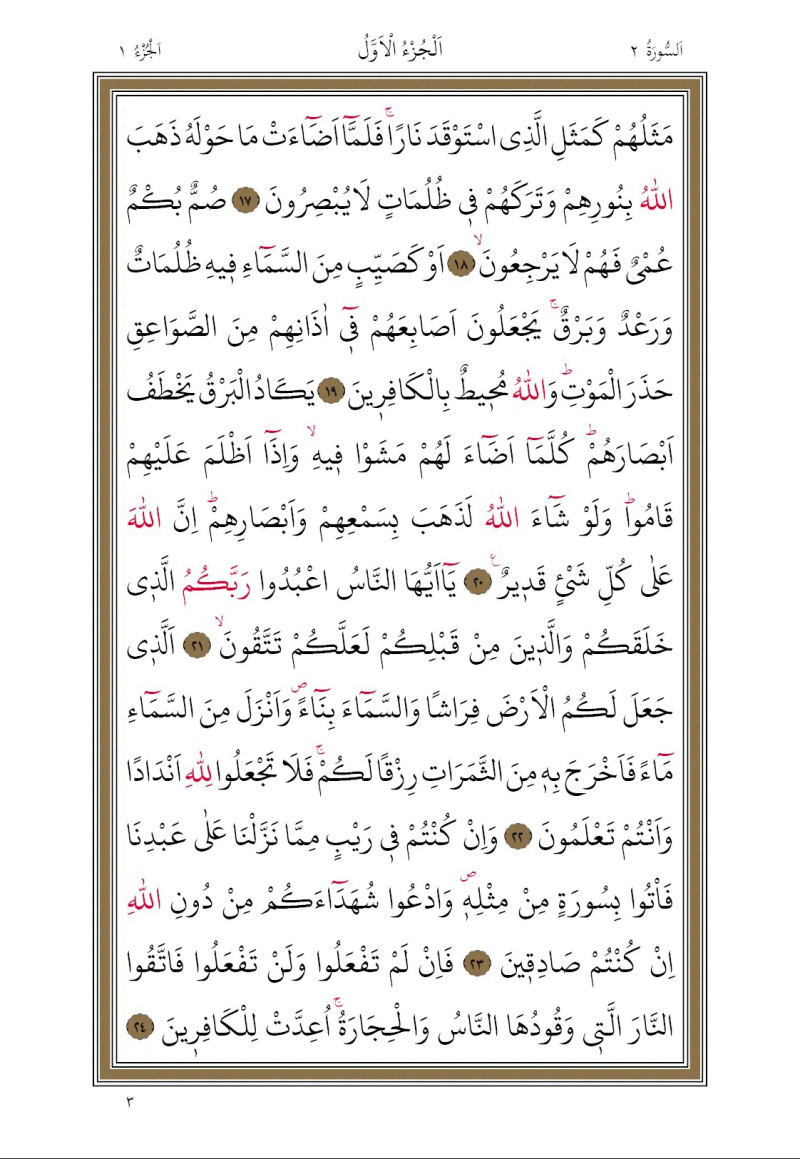 اَلسُّورَةُ ٢ اَلْجُزْءُ الْاَوَّلُ اَلْجُزْءُ ١
مَثَلُهُمْ كَمَثَلِ الَّذِى اسْتَوْقَدَ نَارًاۚ فَلَمَّٓا اَضَٓاءَتْ مَا حَوْلَهُ ذَهَبَ
اللّٰهُ بِنُورِهِمْ وَتَرَكَهُمْ فٖى ظُلُمَاتٍ لَا يُبْصِرُونَ ١٧ صُمٌّ بُكْمٌ
عُمْىٌ فَهُمْ لَا يَرْجِعُونَۙ ١٨ اَوْ كَصَيِّبٍ مِنَ السَّمَٓاءِ فٖيهِ ظُلُمَاتٌ
وَرَعْدٌ وَبَرْقٌۚ يَجْعَلُونَ اَصَابِعَهُمْ فٖٓى اٰذَانِهِمْ مِنَ الصَّوَاعِقِ
حَذَرَ الْمَوْتِؕ وَاللّٰهُ مُحٖيطٌ بِالْكَافِرٖينَ ١٩ يَكَادُ الْبَرْقُ يَخْطَفُ
اَبْصَارَهُمْؕ كُلَّمَٓا اَضَٓاءَ لَهُمْ مَشَوْا فٖيهِۙ وَاِذَٓا اَظْلَمَ عَلَيْهِمْ
قَامُواؕ وَلَوْ شَٓاءَ اللّٰهُ لَذَهَبَ بِسَمْعِهِمْ وَاَبْصَارِهِمْؕ اِنَّ اللّٰهَ
عَلٰى كُلِّ شَیْئٍ قَدٖيرٌ ع ٢٠ يَٓا اَيُّهَا النَّاسُ اعْبُدُوا رَبَّكُمُ الَّذٖى
خَلَقَكُمْ وَالَّذٖينَ مِنْ قَبْلِكُمْ لَعَلَّكُمْ تَتَّقُونَۙ ٢١ اَلَّذٖى
جَعَلَ لَكُمُ الْاَرْضَ فِرَاشًا وَالسَّمَٓاءَ بِنَٓاءًࣕ وَاَنْزَلَ مِنَ السَّمَٓاءِ
مَٓاءً فَاَخْرَجَ بِهٖ مِنَ الثَّمَرَاتِ رِزْقًا لَكُمْۚ فَلَا تَجْعَلُوا لِلّٰهِ اَنْدَادًا
وَاَنْتُمْ تَعْلَمُونَ ٢٢ وَاِنْ كُنْتُمْ فٖى رَيْبٍ مِمَّا نَزَّلْنَا عَلٰى عَبْدِنَا
فَاْتُوا بِسُورَةٍ مِنْ مِثْلِهٖࣕ وَادْعُوا شُهَدَٓاءَكُمْ مِنْ دُونِ اللّٰهِ
اِنْ كُنْتُمْ صَادِقٖينَ ٢٣ فَاِنْ لَمْ تَفْعَلُوا وَلَنْ تَفْعَلُوا فَاتَّقُوا
النَّارَ الَّتٖى وَقُودُهَا النَّاسُ وَالْحِجَارَةُۚ اُعِدَّتْ لِلْكَافِرٖينَ ٢٤
٣